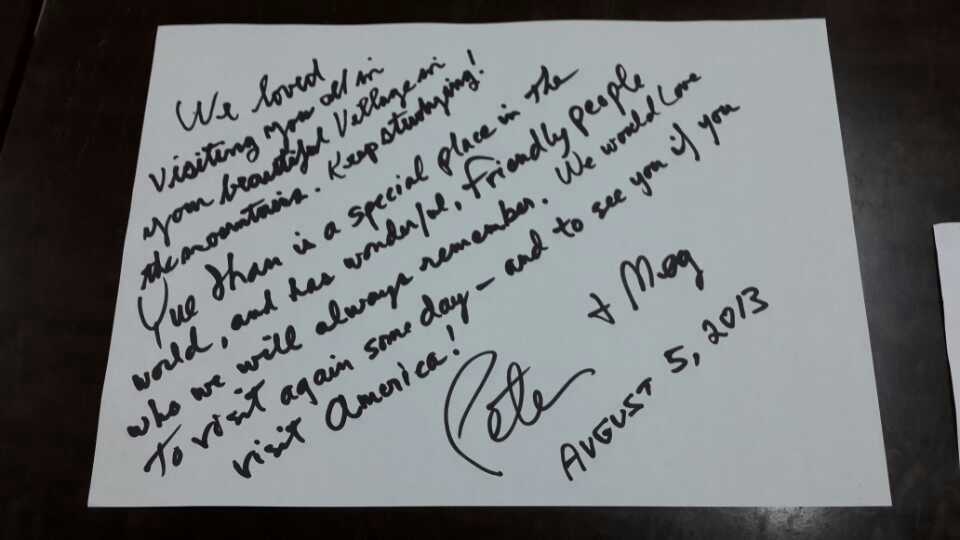 We loved
visiting you all in
your beautiful Village in
the mountains. Keep studying!
Yue Shan is a special place in the
world, and has wonderful, friendly people
who we will always remember. We would love
to visit again some day – and to see you if you
visit America!
Pete
+ Meg
AUGUST 5, 2013